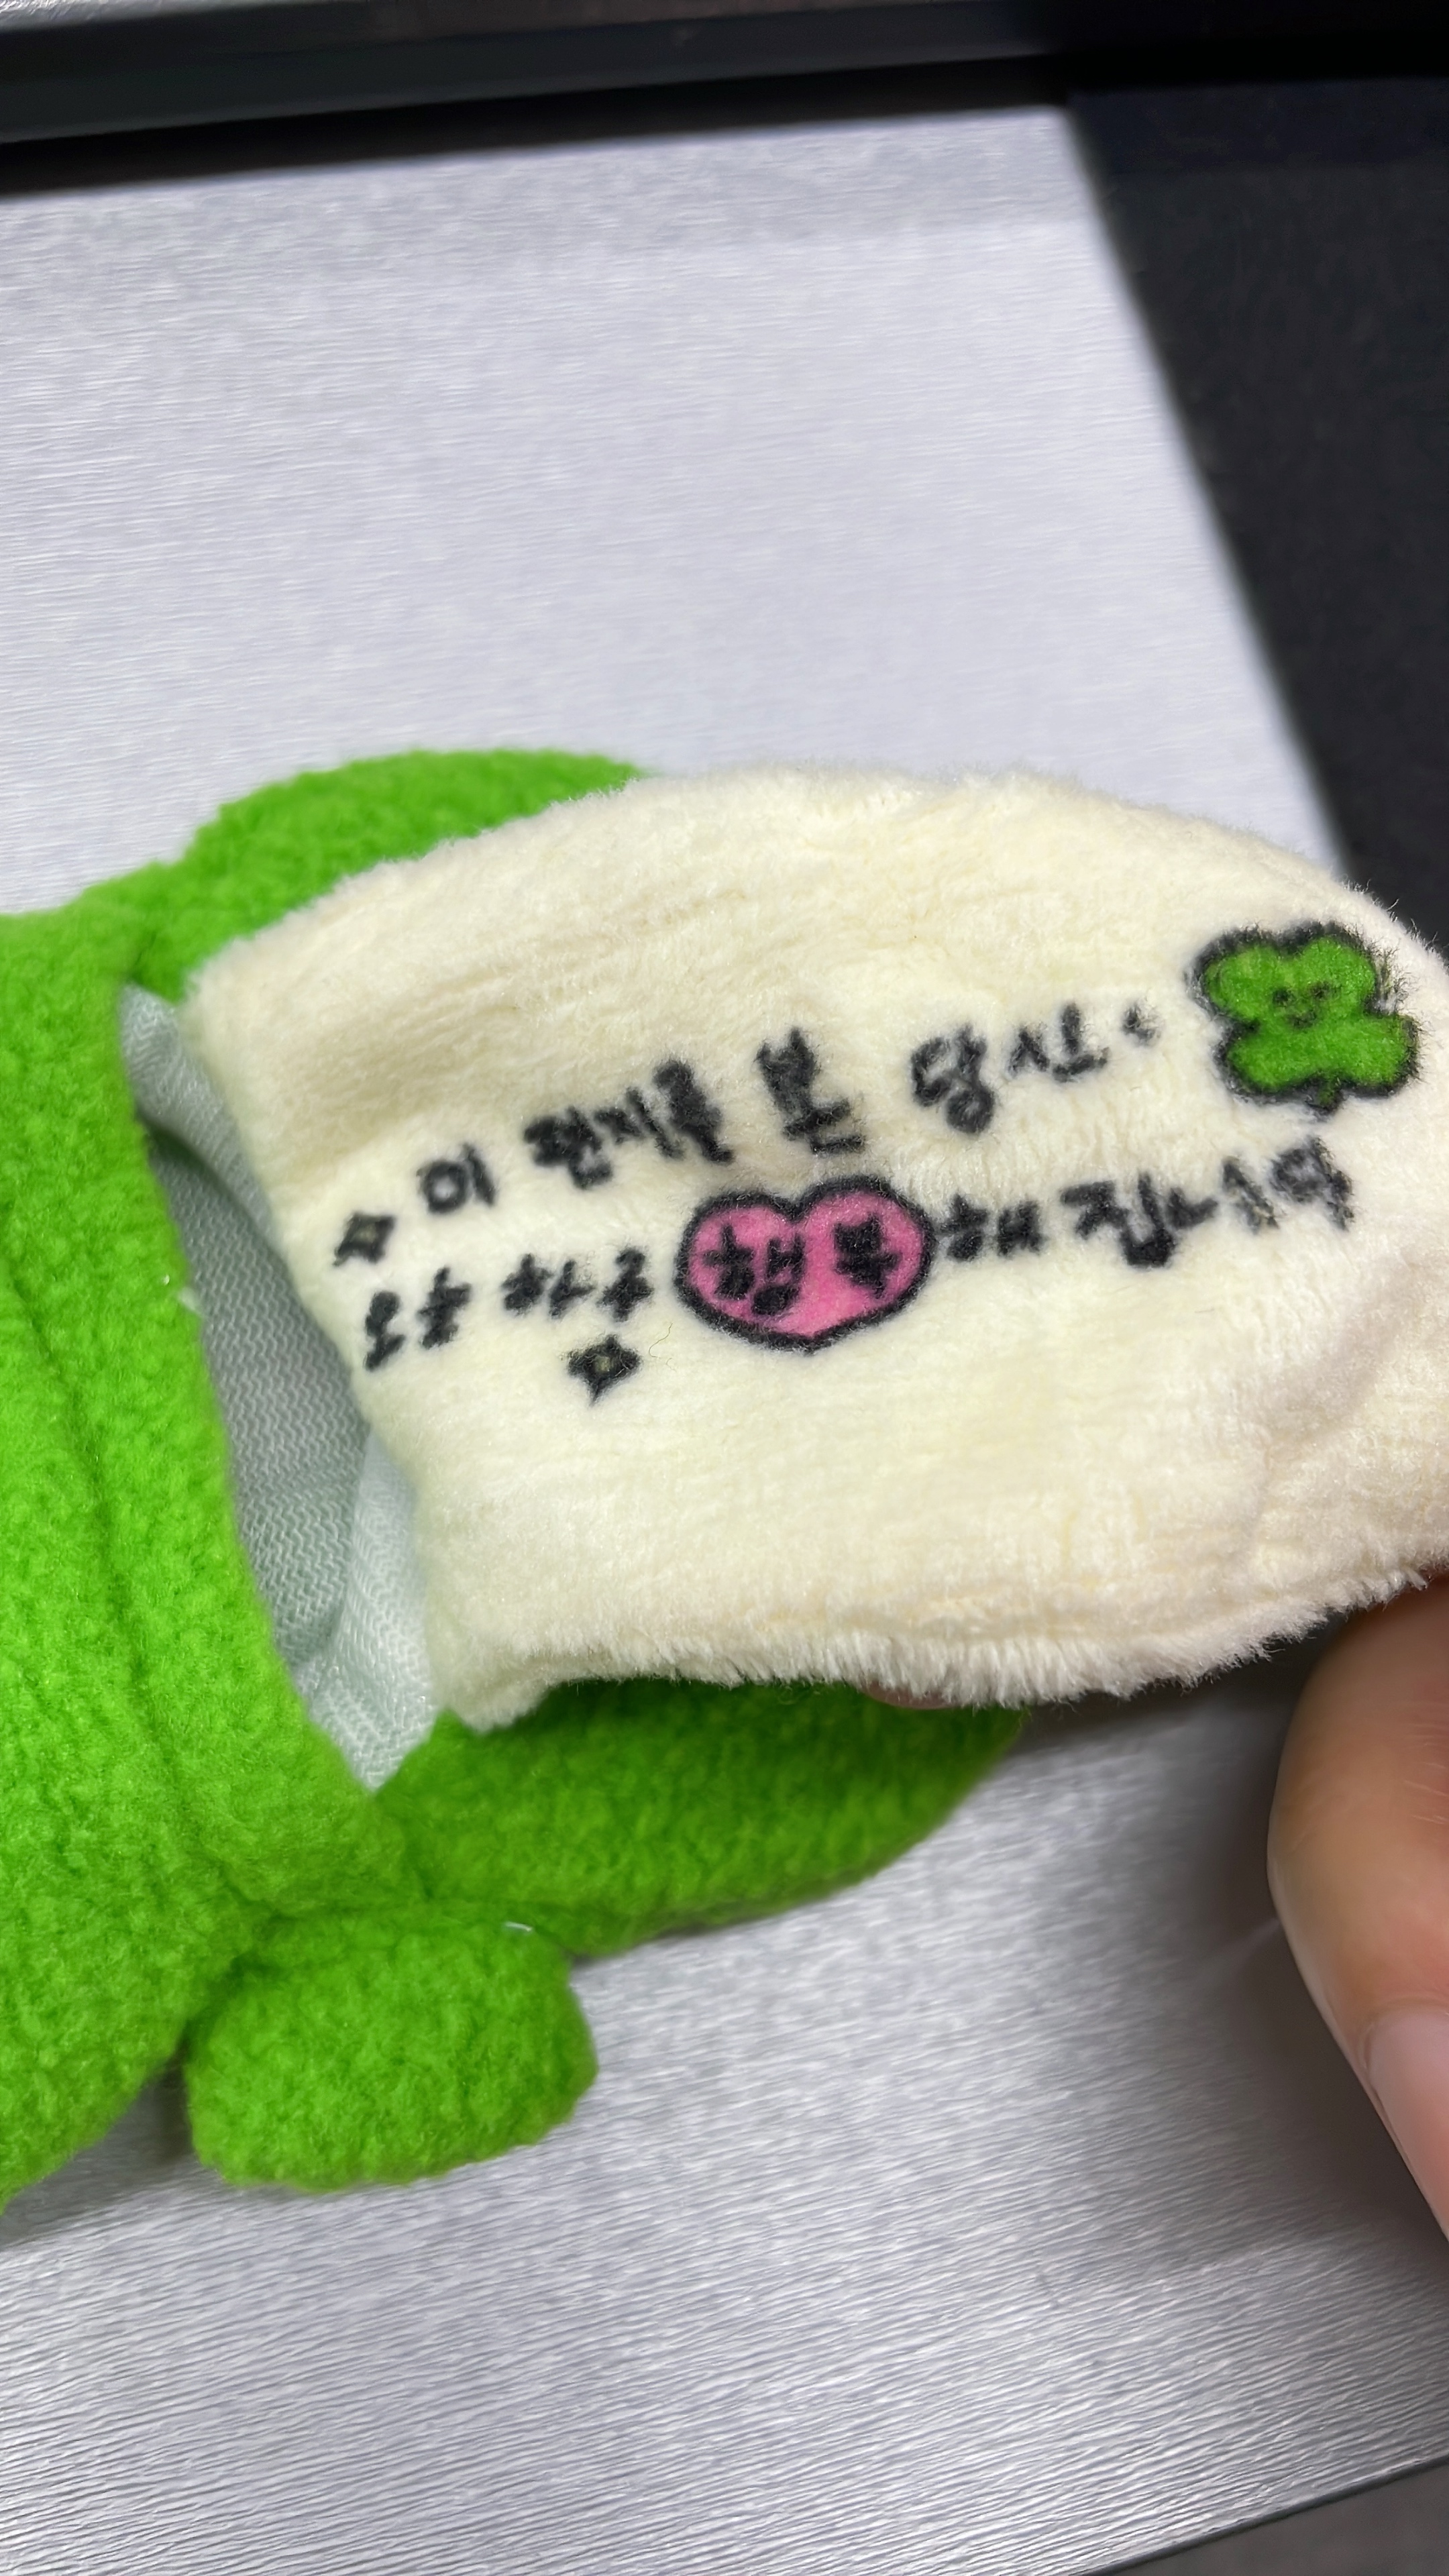 이 편지를 본 당신은
오늘 하루 행복해집니다